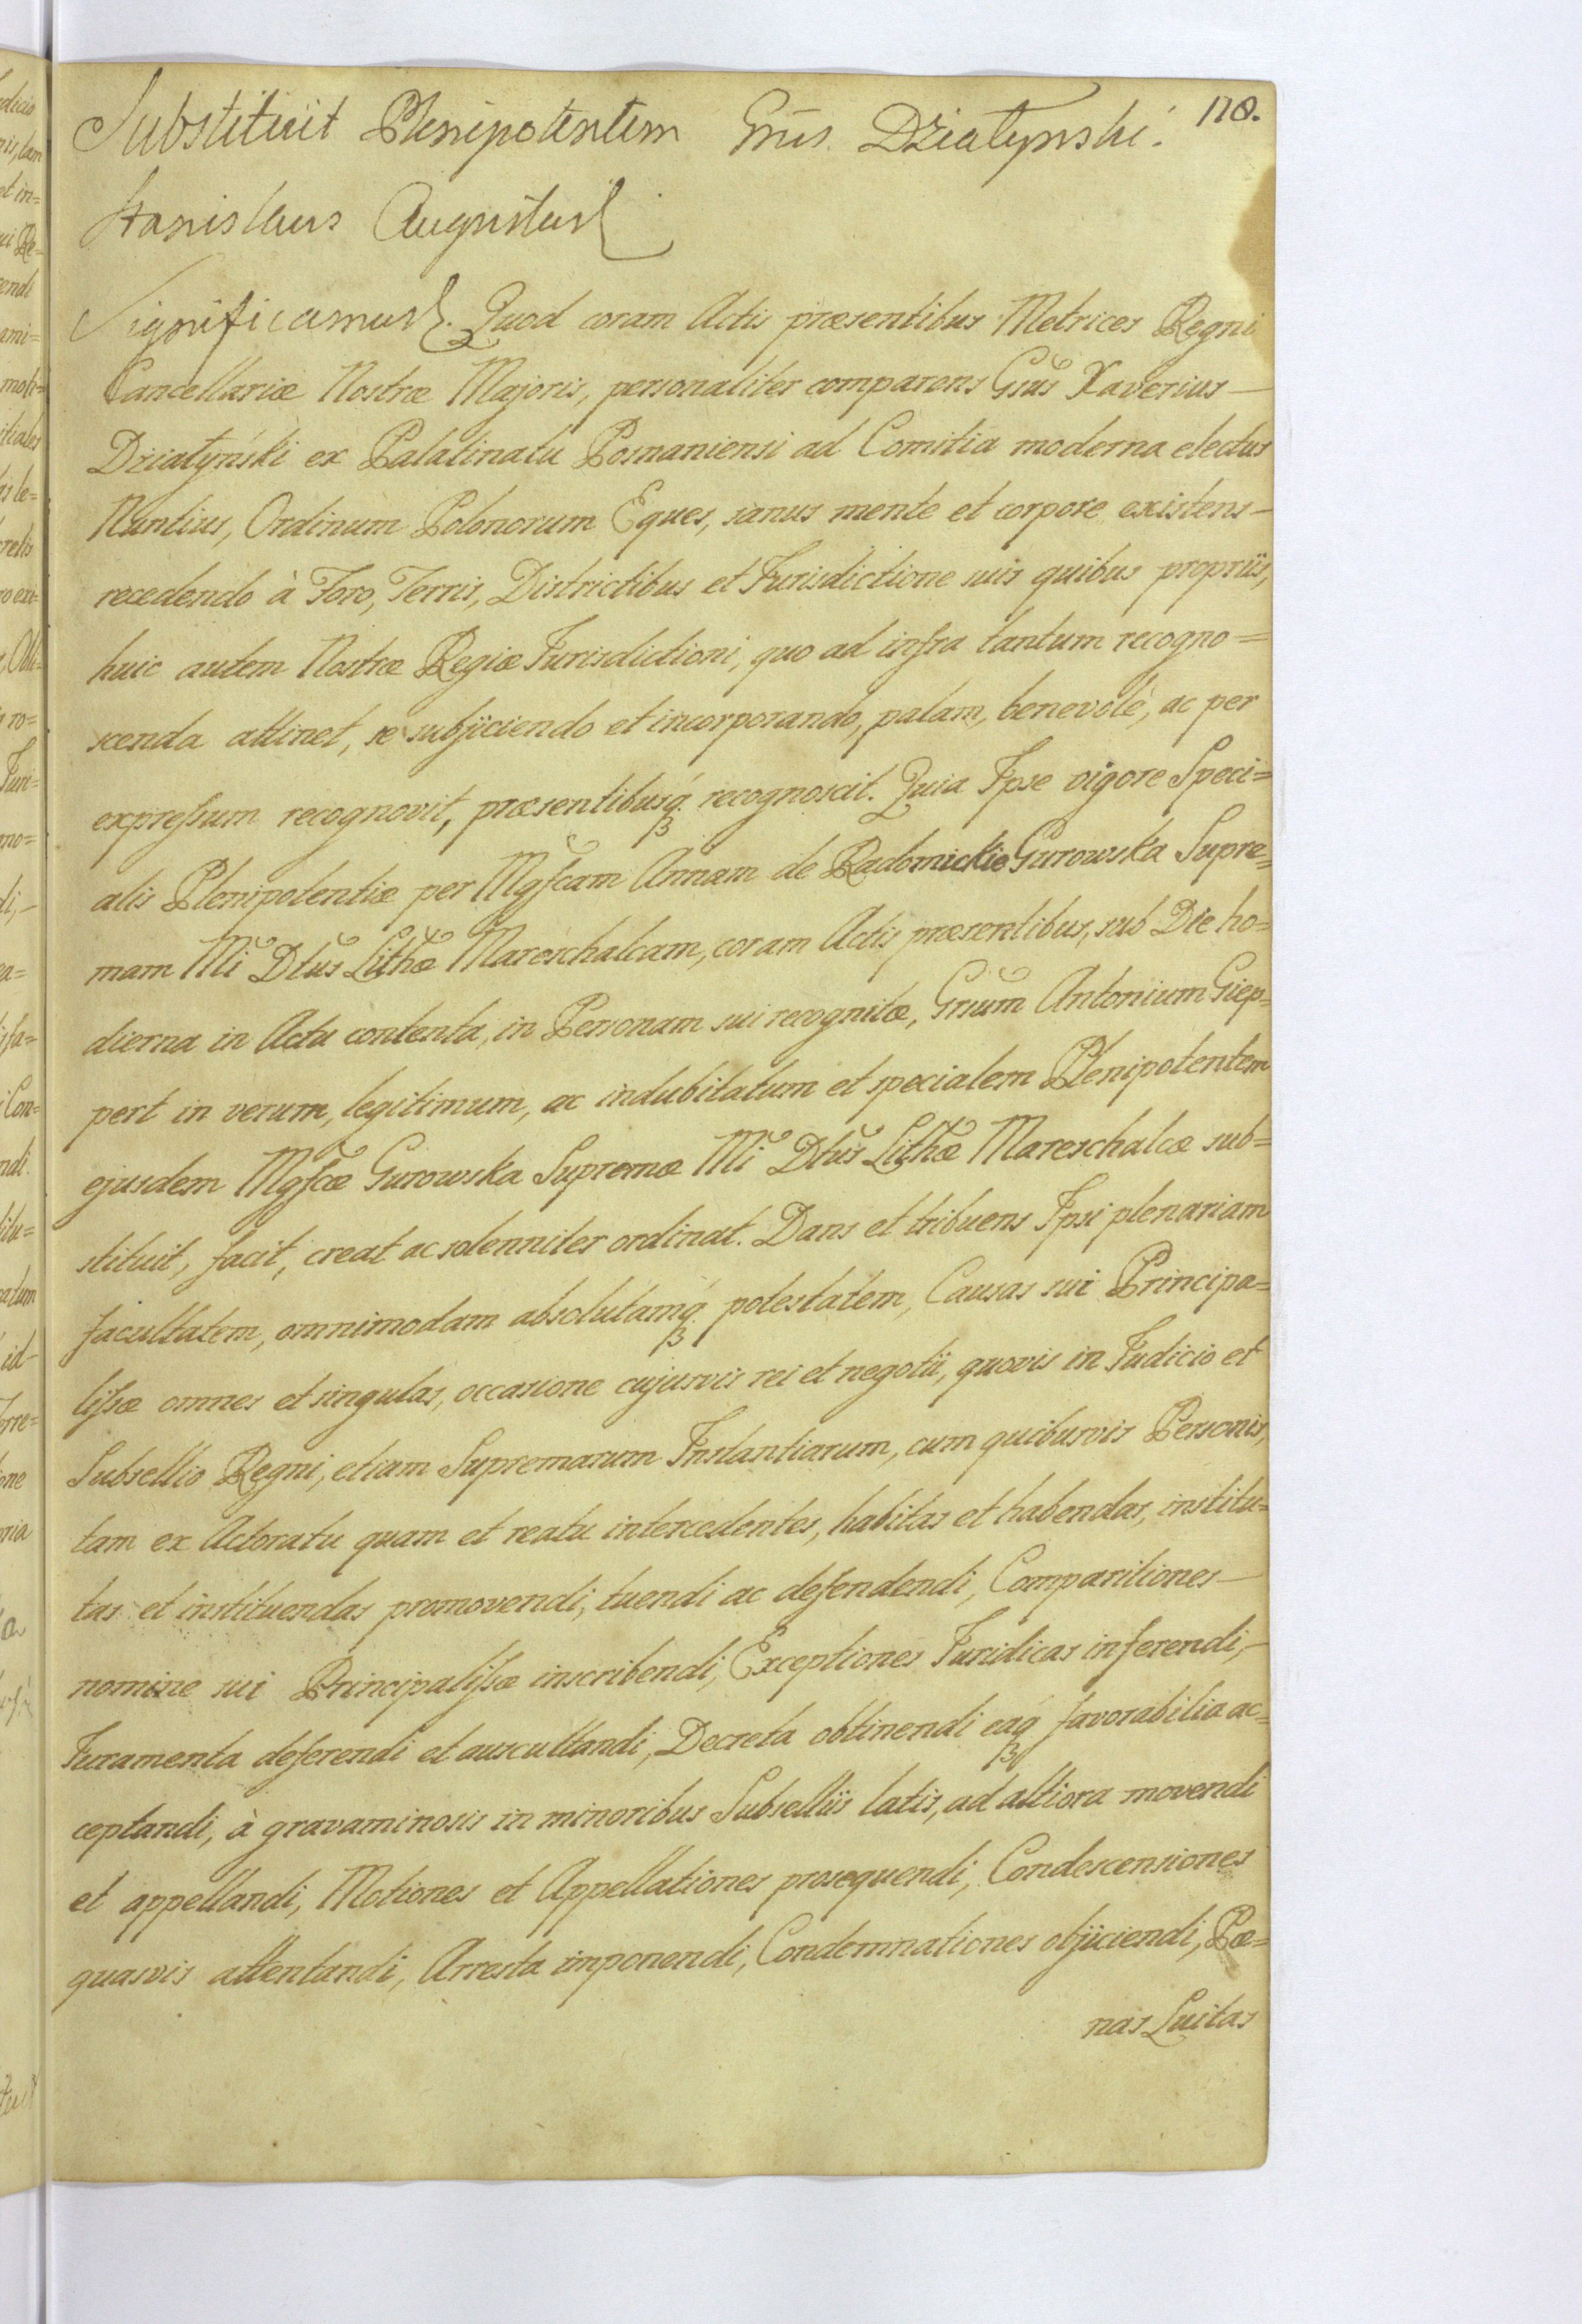 178.
Substituit Plenipotentem Gnus. Dziatynski.
Stanislaus Augustus
Significamus. Quod coram Actis præsentibus Metrices Regni
Cancellariæ Nostræ Majoris, personaliter comparens Gsus Xaverius —
Dziatyński ex Palatinatu Posnaniensi ad Comitia moderna electus
Nuntius, Ordinum Polonorum Eques, sanus mente et corpore existens —
recedendo à Foro, Terris, Districtibus et Jurisdictione suis quibus propriis,
huic autem Nostræ Regiæ Jurisdictioni, quo ad infra tantum recogno=
scenda attinet, se subjiciendo et incorporando, palam, benevolè, ac per
expreſsum recognovit, præsentibusq́ʒ recognoscit. Quia Ipse vigore Speci=
alis Plenipotentiæ per Mgfcam Annam de Radomickie Gurowska Supre=
mam Mi Dtus Lithæ Mareschalcam, coram Actis præsentibus, sub Die ho=
dierna in Actu contenta, in Personam sui recognitæ, Gnum Antonium Giep=
pert in verum, legitimum, ac indubitatum et specialem Plenipotentem
ejusdem Mgfcæ Gurowska Supremæ Mi Dtus Lithæ Mareschalcæ sub=
stituit, facit, creat ac solenniter ordinat. Dans et tribuens Ipsi plenariam
facultatem, omnimodam absolutamq́ʒ potestatem, Causas sui Principa=
liſsæ omnes et singulas, occasione cujusvis rei et negotii, quovis in Judicio et
Subsellio Regni, etiam Supremarum Instantiarum, cum quibusvis Personis,
tam ex Actoratu quam et reatu intercedentes, habitas et habendas, institu=
tas et instituendas promovendi, tuendi ac defendendi, Comparitiones —
nomine sui Principaliſsæ inscribendi, Exceptiones Juridicas inferendi, —
Juramenta deferendi et auscultandi, Decreta obtinendi eaq́ʒ favorabilia ac=
ceptandi, à gravaminosis in minoribus Subselliis latis, ad altiora movendi
et appellandi, Motiones et Appellationes prosequendi, Condescensiones
quasvis attentandi, Arresta imponendi, Condemnationes objiciendi, Pœ=
nas Luitas